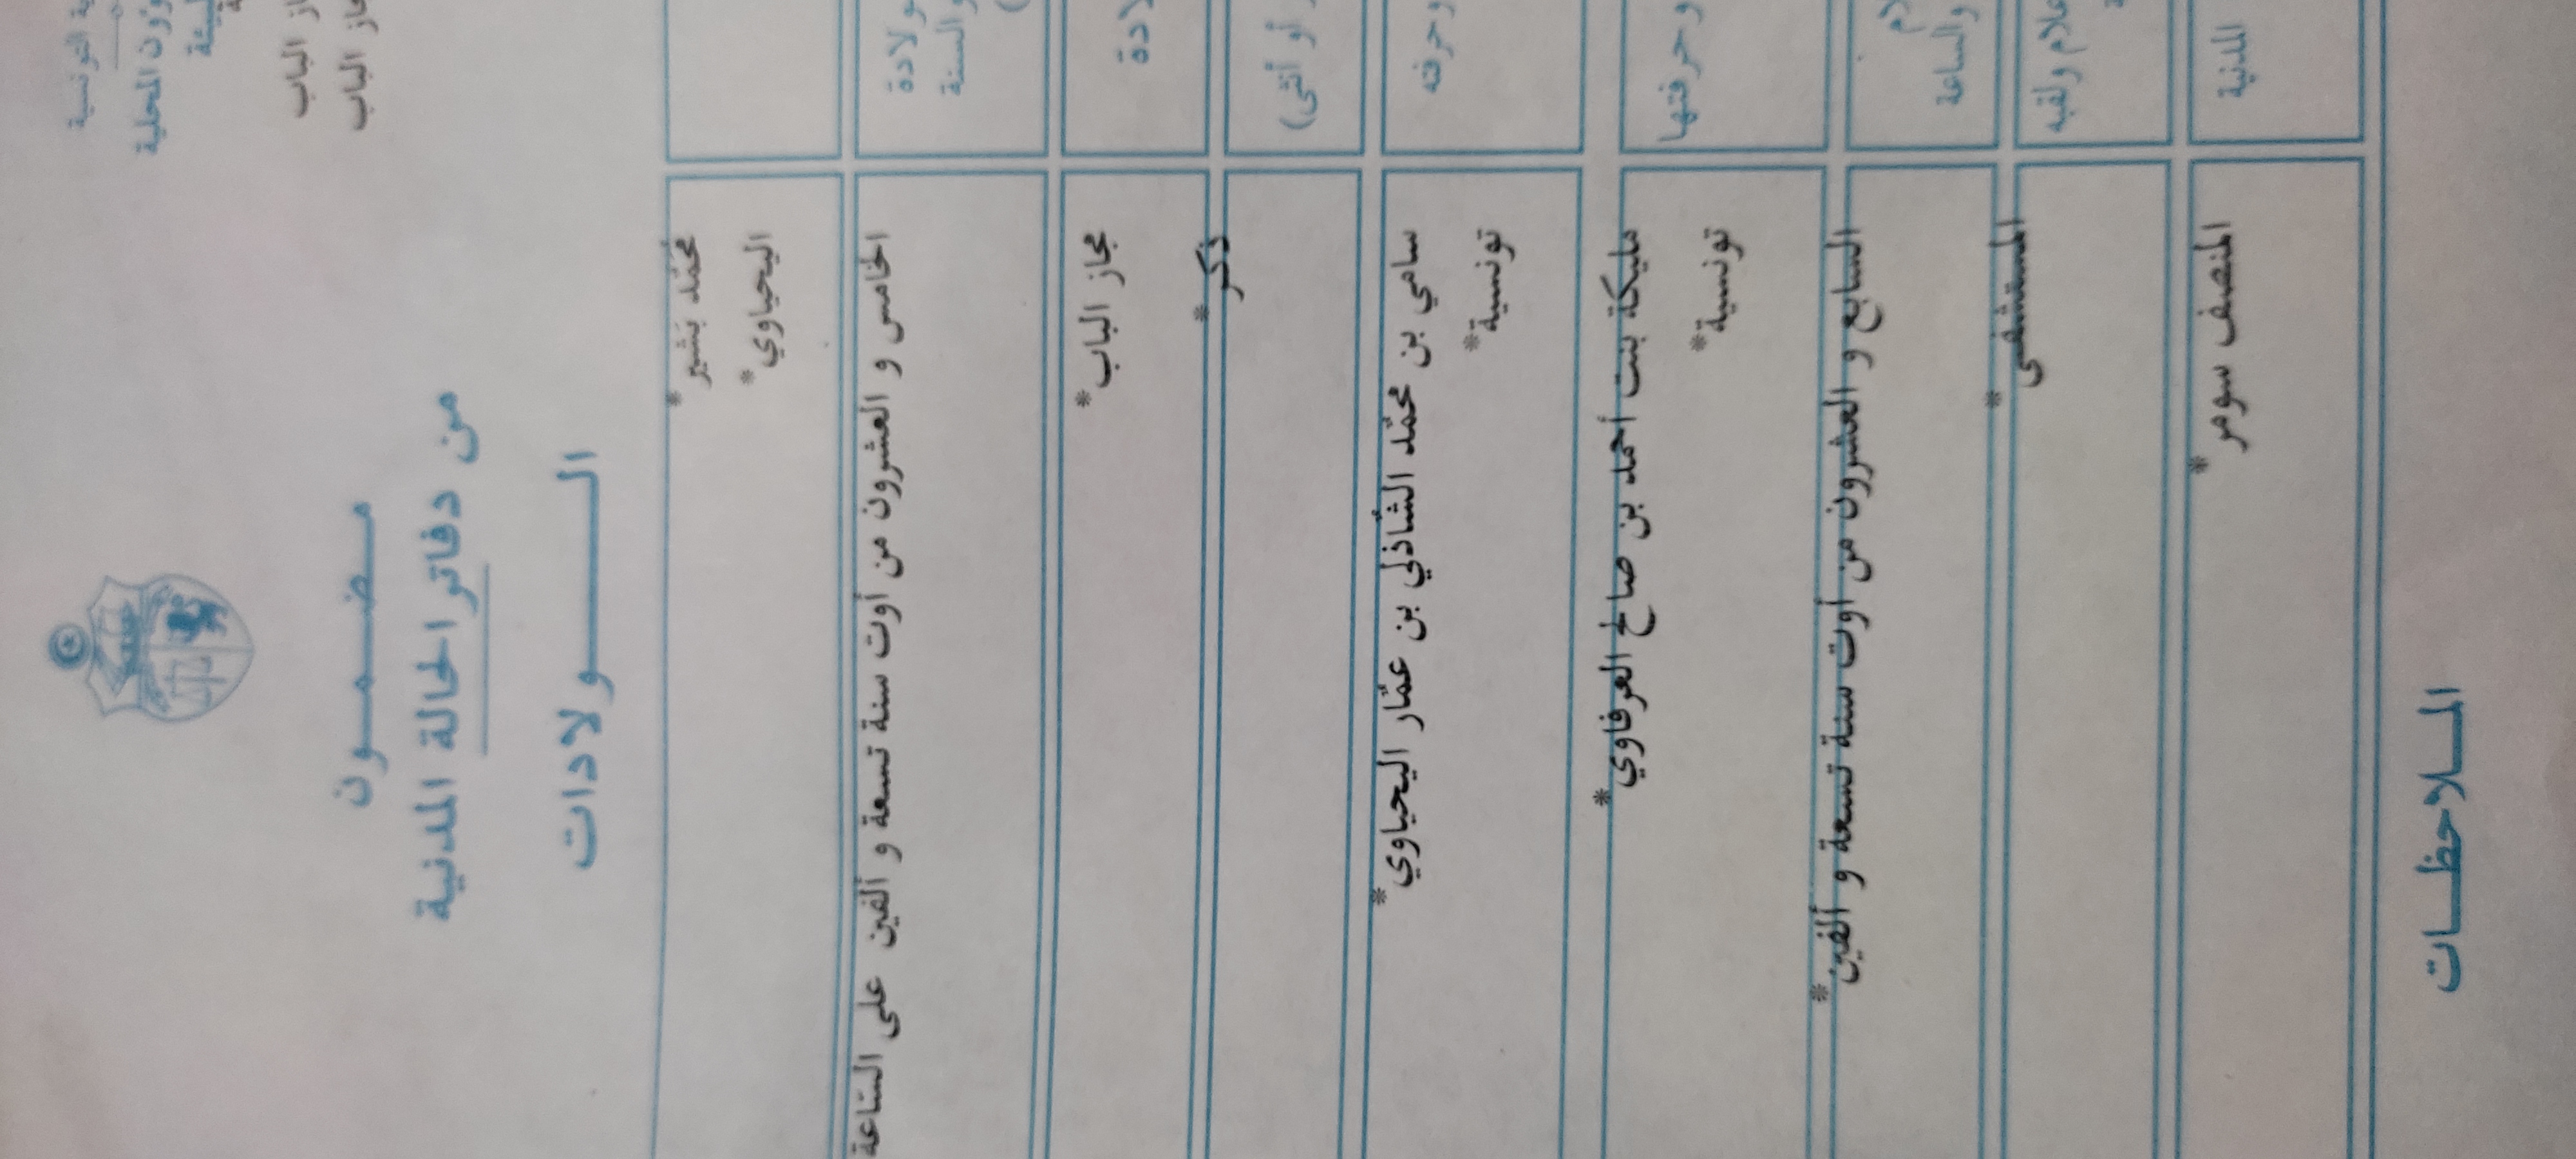 التونسية
المحلية
الباب
الباب
مـضـمـون
من دفاتر الحالة المدنية
الـولادات
محمّد بشير*
اليحياوي*
ولادة
والسنة
الخامس و العشرون من أوت سنة تسعة و ألفين على السّاعة
مجاز الباب*
أو أنثى)
ذكر*
وحرفته
سامي بن محمّد الشّاذلي بن عمّار اليحياوي*
تونسية*
وحرفتها
مليكة بنت أحمد بن صالح العرفاوي*
تونسية*
والساعة
السابع و العشرون من أوت سنة تسعة و ألفين*
ولقبه
المستشفى*
المدنية
المنصف سومر*
المـلاحظـات